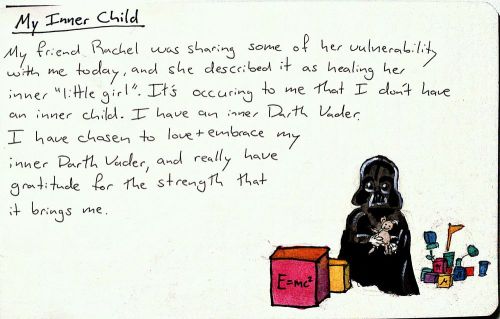 My Inner Child
My friend Rachel was sharing some of her vulnerability
with me today, and she described it as healing her
inner "little girl". It's occuring to me that I don't have
an inner child. I have an inner Darth Vader.
I have chosen to love + embrace my
inner Darth Vader, and really have
gratitude for the strength that
it brings me.
E=mc²